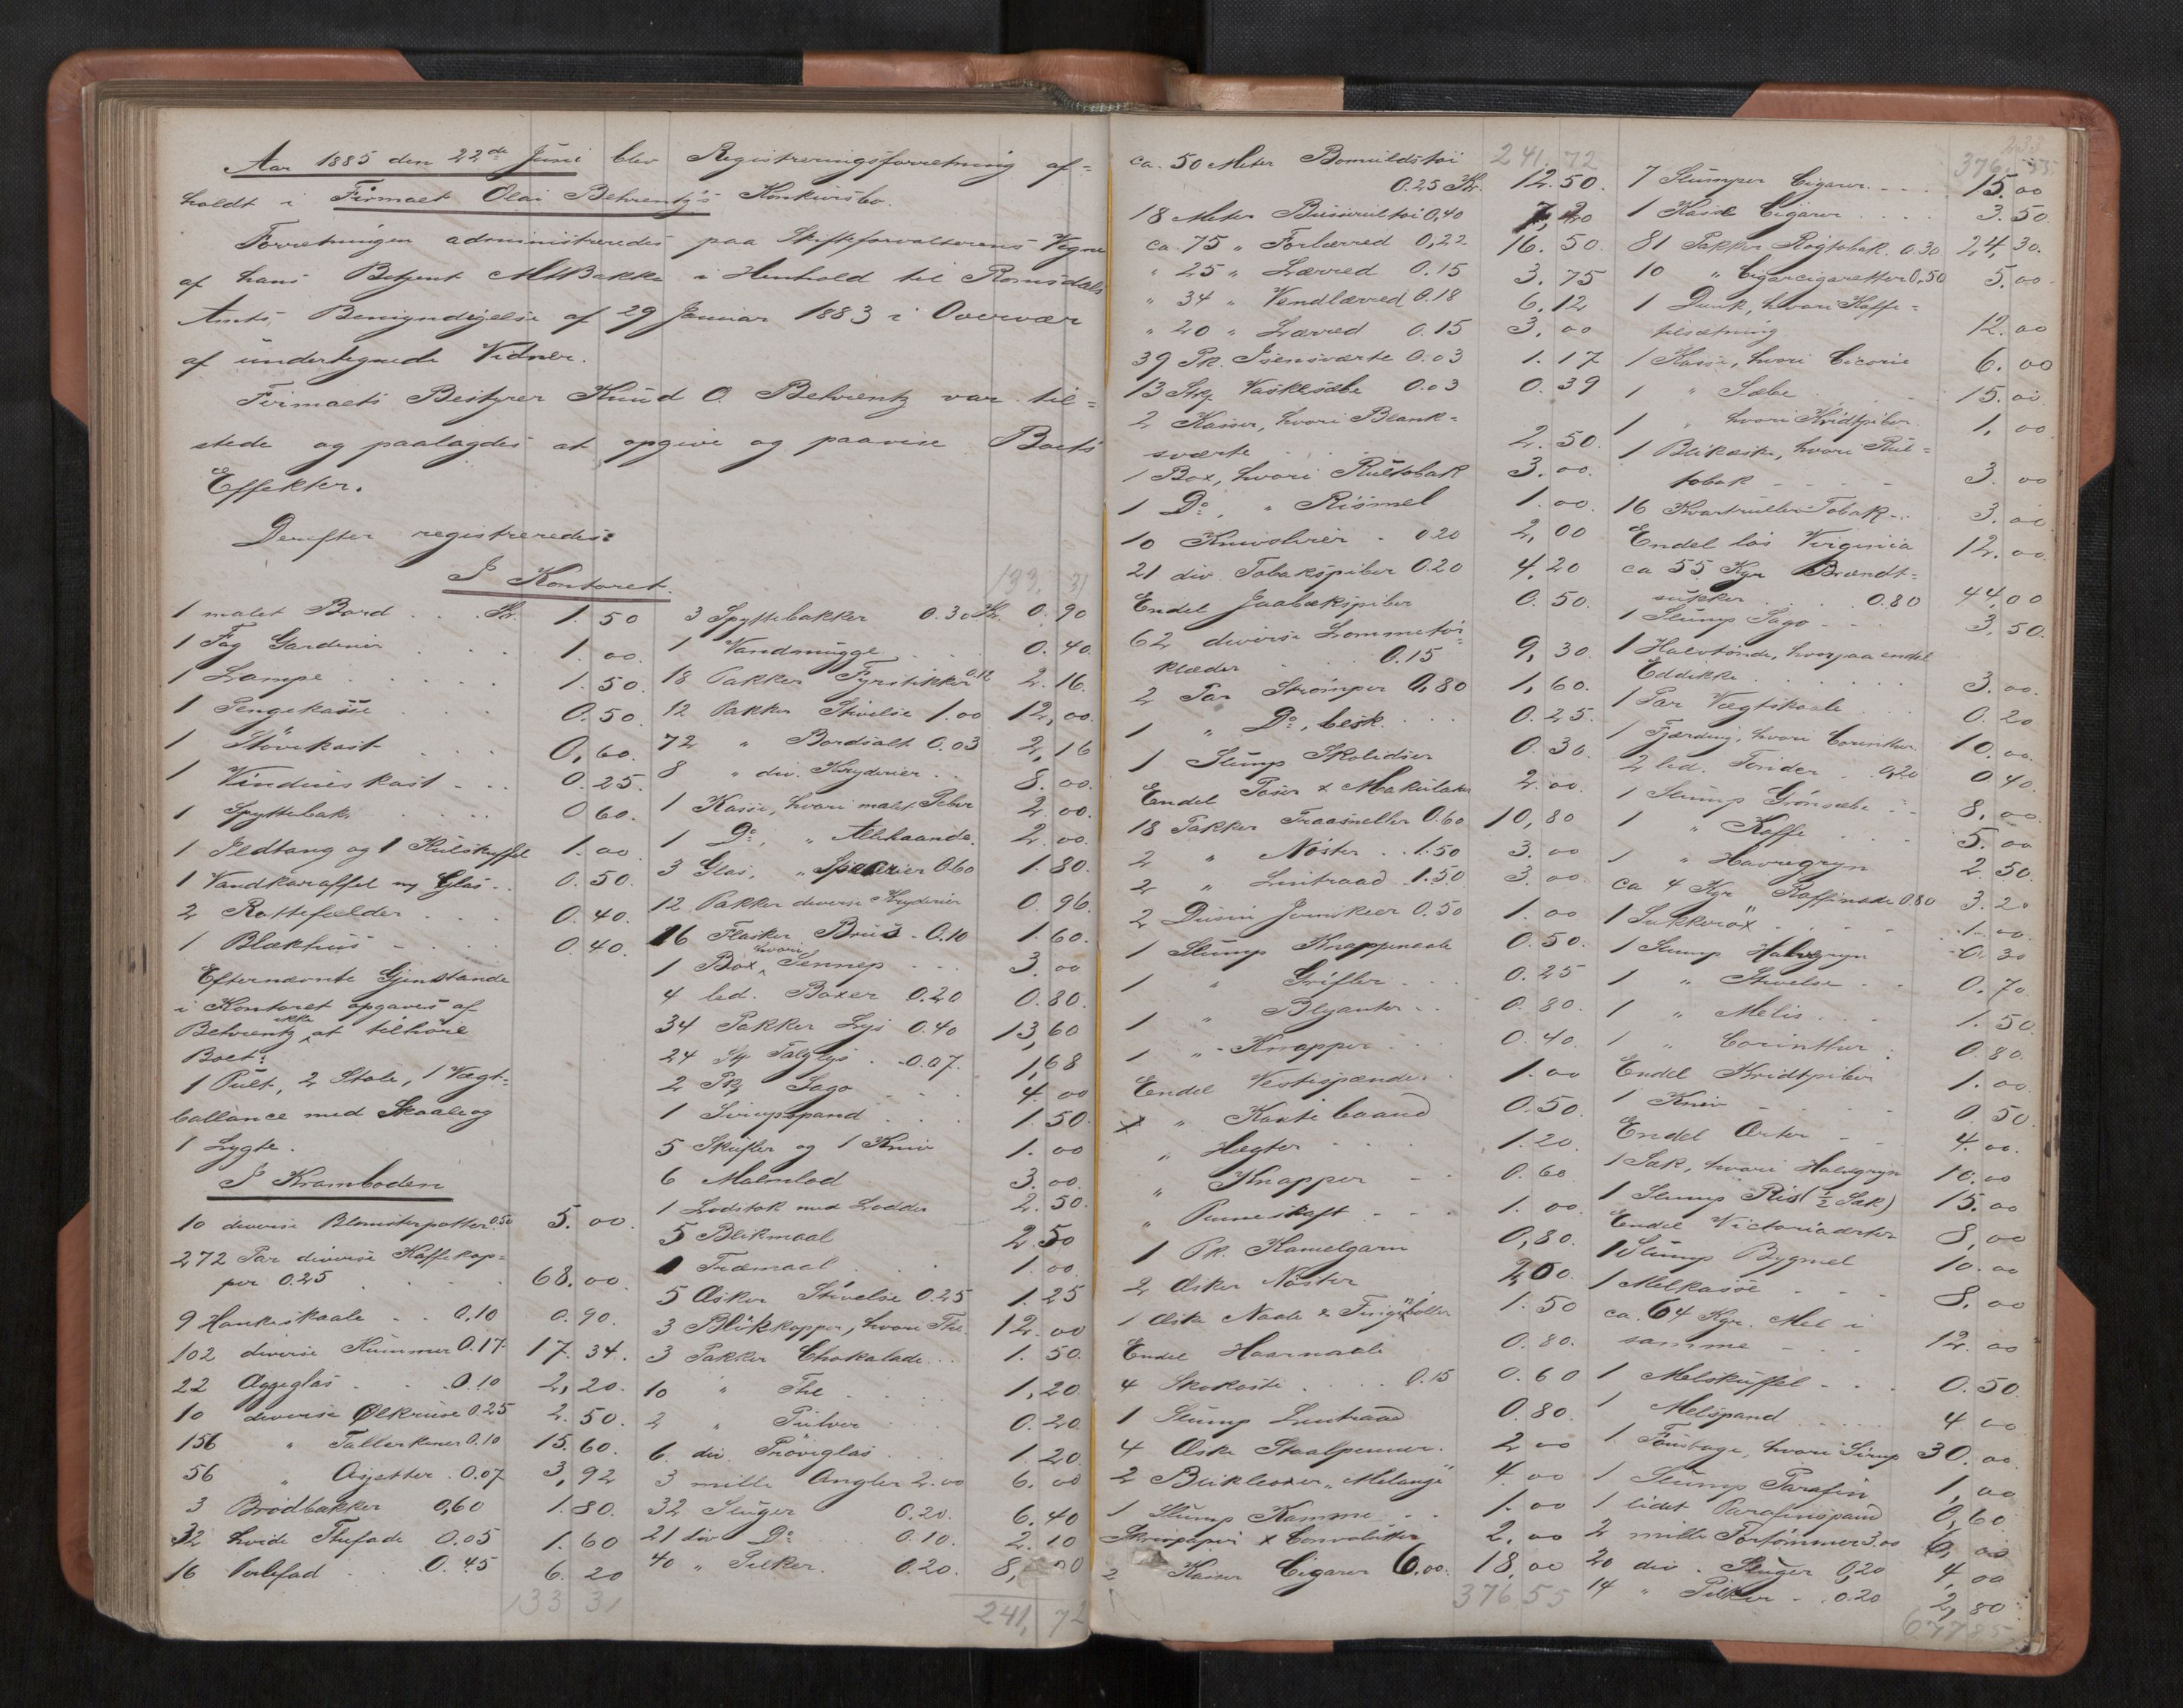 Aar 1885 den 22de Juni blev Registreringsforretning af=
holdt i Firmaet Olai Behrentz's Konkursbo.
Forretningen administreredes paa Skifteforvalterens Vegne
af hans Betjent MMBakke i Henhold til Romsdals
Amts Bemyndigelse af 29 Januar 1883 i Overvær
af undertegnede Vidner.
Firmaets Bestyrer Knud O. Behrentz var til=
stede og paalagdes at opgive og paavise Boets
Effekter.
Derefter registreredes:
I Kontoret.
1 malet Bord . . . Kr. 1. 50
1 Fag Gardiner . . . 1. 00
1 Lampe . . . . 1. 50.
1 Pengekasse . . . 0. 50.
1 Støvekost . . . 0, 60.
1 Vindueskost . . . 0. 25.
1 Spyttebak . . . . 0 60.
1 Ildtang og 1 Kulskuffel 1. 00
1 Vandkaraffel og Glas . . 0. 50.
2 Rottefælder . . . 0. 40.
1 Blækhus . . . . 0. 40.
Efternævnte Gjenstande
i Kontoret opgaves af
Behrentz ikke at tilhöre
Boet:
1 Pult, 2 Stole, 1 Vægt=
ballance med Skaale og
1 Lygte.
I Kramboden
10 diverse Blomsterpotter 0.50 5. 00.
272 Par diverse Kaffekop=
per 0.25 . . . . 68. 00.
9 Hankeskaale . . 0,10 0. 90.
102 diverse Kummer 0.17 17. 34.
22 Æggeglas . . 0.10 2, 20.
10 diverse Ølkruse 0.25 2. 50.
156 " Tallerkener 0.10 15. 60.
56 " Asjetter . 0.07 3, 92
3 Brødbakker 0,60 1. 80.
32 hvide Thefade 0.05 1. 60
16 0.45 6. 20
133 31
133. 31
3 Spyttebakker 0.30 Kr. 0. 90
1 Vandmugge . . 0. 40.
18 Pakker Fyrstikker 0.12 2. 16.
12 Pakker Stivelse 1.00 12, 00.
72 " Bordsalt 0.03 2, 16
8 " div. Kryderier . . 8. 00.
1 Kasse, hvori malet Peber 2. 00.
1 Do, " Allehaande. 2. 00.
3 Glas, " Spicerier 0.60 1. 80.
12 Pakker diverse Kryderier 0. 96.
16 Flasker Brus . 0.10 1. 60.
1 Box, hvori Sennep . . . 3. 00
4 led. Boxer 0.20 0. 80.
34 Pakker Lys 0.40 13, 60
24 St. Talglys . . 0.07. 1, 68
2 Pk. Sago . . . 4. 00
1 Sirupsspand . . . 1. 50.
5 Skufler og 1 Kniv 1. 00
6 Malmlod 3. 00.
1 Lodstok med Lodder 2. 50.
5 Blikmaal 2. 50
1 Træmaal . . 1. 00.
5 Æsker Stivelse 0.25 1. 25
3 Blikkopper, hvori The. 12. 00
3 Pakker Chokolade . . . 1. 50.
10 " The . . . . 1, 20.
2 " Pulver . . . 0. 20.
6 div. Prøveglas . . . 1. 20.
3 mille Angler 2.00 6. 00
32 Sluger 0.20. 6. 40
21 div Do 0.10. 2. 10
40 " Pilker. 0.20. 8, 00
241, 72
241. 72
ca. 50 Meter Bomuldstöi
0.25 Kr. 12. 50.
18 Meter Busserultöi 0,40 7, 20
ca. 75 " Forlærred 0,22 16. 50.
" 25 " Lærred 0.15 3. 75
" 34 " Vendlærred 0.18 6, 12
" 20 " Lærred 0.15 3. 00
39 Pk. Isensværte 0.03 1. 17
13 Stk. Vaskesæbe 0.03 0. 39
2 Kasser, hvori Blank=
sværte . . . 2. 50.
1 Box, hvori Rultobak 3. 00.
1 Do, " Rismel 1. 00.
10 Knivslirer . 0.20 2, 00
21 div. Tobakspiber 0.20 4, 20
Endel Jaabækspiber 0. 50.
62 diverse Lommetör=
klæder . . . 0.15 9, 30.
2 Par Strømper 0,80 1, 60.
1 " Do, besk. . . . 0. 25.
1 Slump Skolidser 0. 30.
Endel Poser & Makulatur 2. 00.
18 Pakker Traasneller 0.60 10, 80
2 " Nöster . . 1.50 3. 00
2 " Lintraad . 1.50 3. 00.
2 Dusin Jernskeer 0.50 1. 00
1 Slump Knappenaale 0. 50.
1 " Grifler . . . 0. 25
1 " Blyanter . . 0. 80.
1 " Knapper . . . 0. 40.
Endel Vestespænder . 1. 00
" Kantebaand 0. 50.
" Hægter . . . . 1. 20.
" Knapper . . 0. 60
" Penneskaft . . . 1. 00.
1 Pk. Kamelgarn 0,80.
2 Æsker Nöster 2, 00.
1 Æske Naale & Fingerbøller 1. 50
Endel Haarnaale 0. 80.
4 Skokoste . . . . 0.15 0. 60
1 Slump Lintraad 0. 80.
4 Æsker Staalpenner. 2 00
2 Blikboxer "Melange" 4. 00
1 Slump Kamme . . 1. 00
Skrivpapir & Convolutter 2. 00
2 Kasser Cigarer 6.00. 18, 00
376 55
376. 55
7 Slumper Cigarer . . . 15. 00
1 Kasse Cigarer . . . . 3. 50.
81 Pakker Rögtobak. 0.30 24, 30.
10 " Cigarcigaretter 0,50 5. 00.
1 Dunk, hvori Kaffe=
tilsætning 12. 00
1 Kasse, hvori Cicorie 6. 00
1 " Sæbe . . . 15. 00.
1 " hvori Kridtpiber 1, 00
1 Blikæske, hvori Rul=
tobak . . . . 3. 00
16 Kvartruller Tobak . . 3. 00
Endel lös Virginia 12. 00.
ca 55 Kgr Brændt=
sukker . . . 0.80 44, 00
1 Slump Sago . . . 3, 50.
1 Halvtönde, hvorpaa endel
Eddikke . . . . . 3. 00.
1 Par Vægtskaale . . . 0. 20
1 Fjærding, hvori Corinther 10. 00.
2 led. Tönder . 0,20 0 40.
1 Slump Grönsæbe . . 8, 00
1 " Kaffe . . . 5. 00
1 " Havregryn 2. 50.
ca 4 Kgr Raffinade 0.80 3. 20
1 Sukkerøx . . . . 1. 00.
1 Slump Halvgryn 0. 30
1 " Stivelse . . 0. 70
1 " Melis . . . 1. 50
1 " Corinther . 0. 80.
Endel Kridtpiber 1. 00
1 Kniv . . . . 0. 50
Endel Ærter . . 4. 00.
1 Sæk, hvori Halvgryn 10. 00
1 Slump Ris (½ Sæk) 15. 00
Endel Victoriaærter 8, 00
1 Slump Bygmel 10. 00
1 Melkasse . . . 8. 00
ca. 64 Kgr. Mel i
samme . . . 12. 00
1 Melskuffel . . . 0. 50
1 Melspand . . . . 4. 00
1 Foustage, hvori Sirup 30. 00.
1 Slump Parafin 1, 00
1 lidet Parafinspand 0, 60
2 mille Fortömmer 3.00 6, 00
20 div. Sluger 0,20 4, 00
14 " Pilker . . 0.20 2, 80
677 85